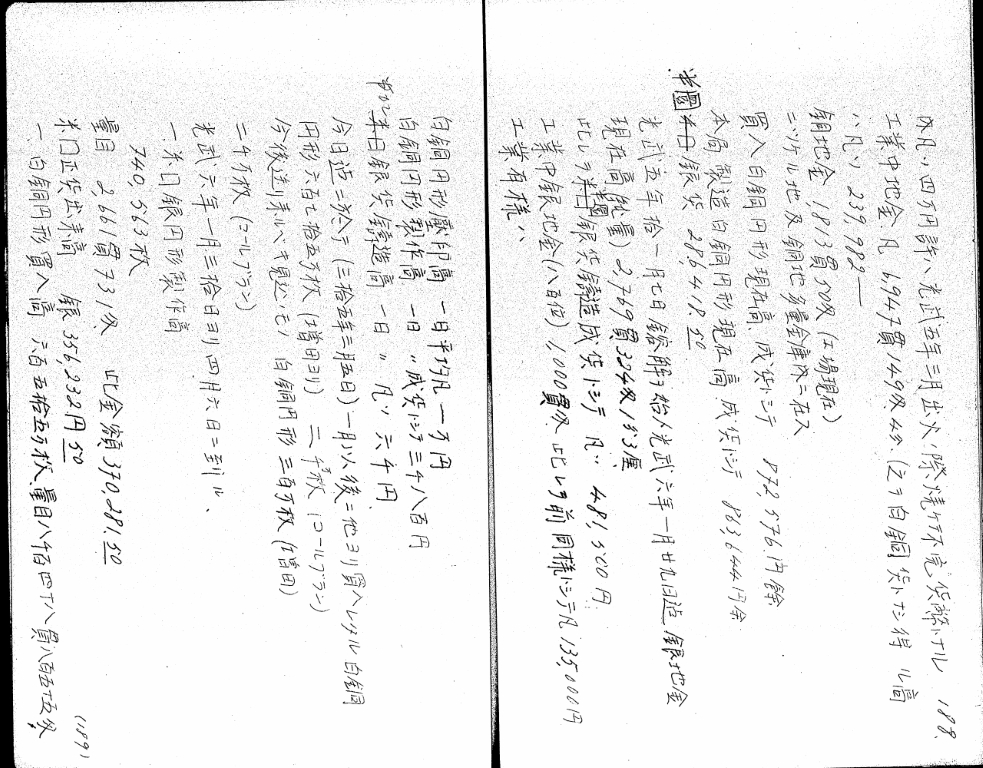 188.
内凡ソ四万円許ハ光武五年三月出火ノ際焼ケ不完貨幣トナル
工業中地金凡 6947貫149匁4分 (之ヲ白銅貨トナシ得ル高
ハ凡ソ 239,982—
銅地金 1,813貫50匁 (工場現在)
ニツケル地及銅地多量金庫内ニ在入
買入白銅円形現在高 成貨トシテ 872,576円余
本局製造白銅円形現在高 成貨トシテ 863,644円余
半圜銀貨 286,418.50
光武五年拾一月七日鎔解ヲ始メ光武六年一月廿九日迠銀地金
現在高(純量) 2,769貫324匁1分3厘
此レヲ半圜銀貨鋳造成貨トシテ凡ソ 481,500円
工業中銀地金(八百位) 1,000貫匁 此レヲ前同様トシテ凡135,000円
工業有様ハ
白銅円形壓印高 一日平均凡一万円
白銅円形製作高 一日〃成貨トシテ三千八百円
半円銀貨鋳造高 一日〃 凡ソ六千円
今日迠ニ於テ (三拾五年三月五日) 一月以後ニ他ヨリ買入レタル白銅
円形六百七拾五万枚 (増田ヨリ) 二千枚 (コールブラン)
今後送リ来ルベキ見込ノモノ 白銅円形 三百万枚 (増田)
二千万枚 (コールブラン)
光武六年一月三拾日ヨリ四月六日ニ到ル、
一 半円銀円形製作高
740,563枚
量目 2,661貫731匁 此金額 370,281.50
半円正貨出来高 銀 356,232円50
一 白銅円形買入高 六百五拾五万枚 量目八千百四十八貫八百五十五匁
(189)